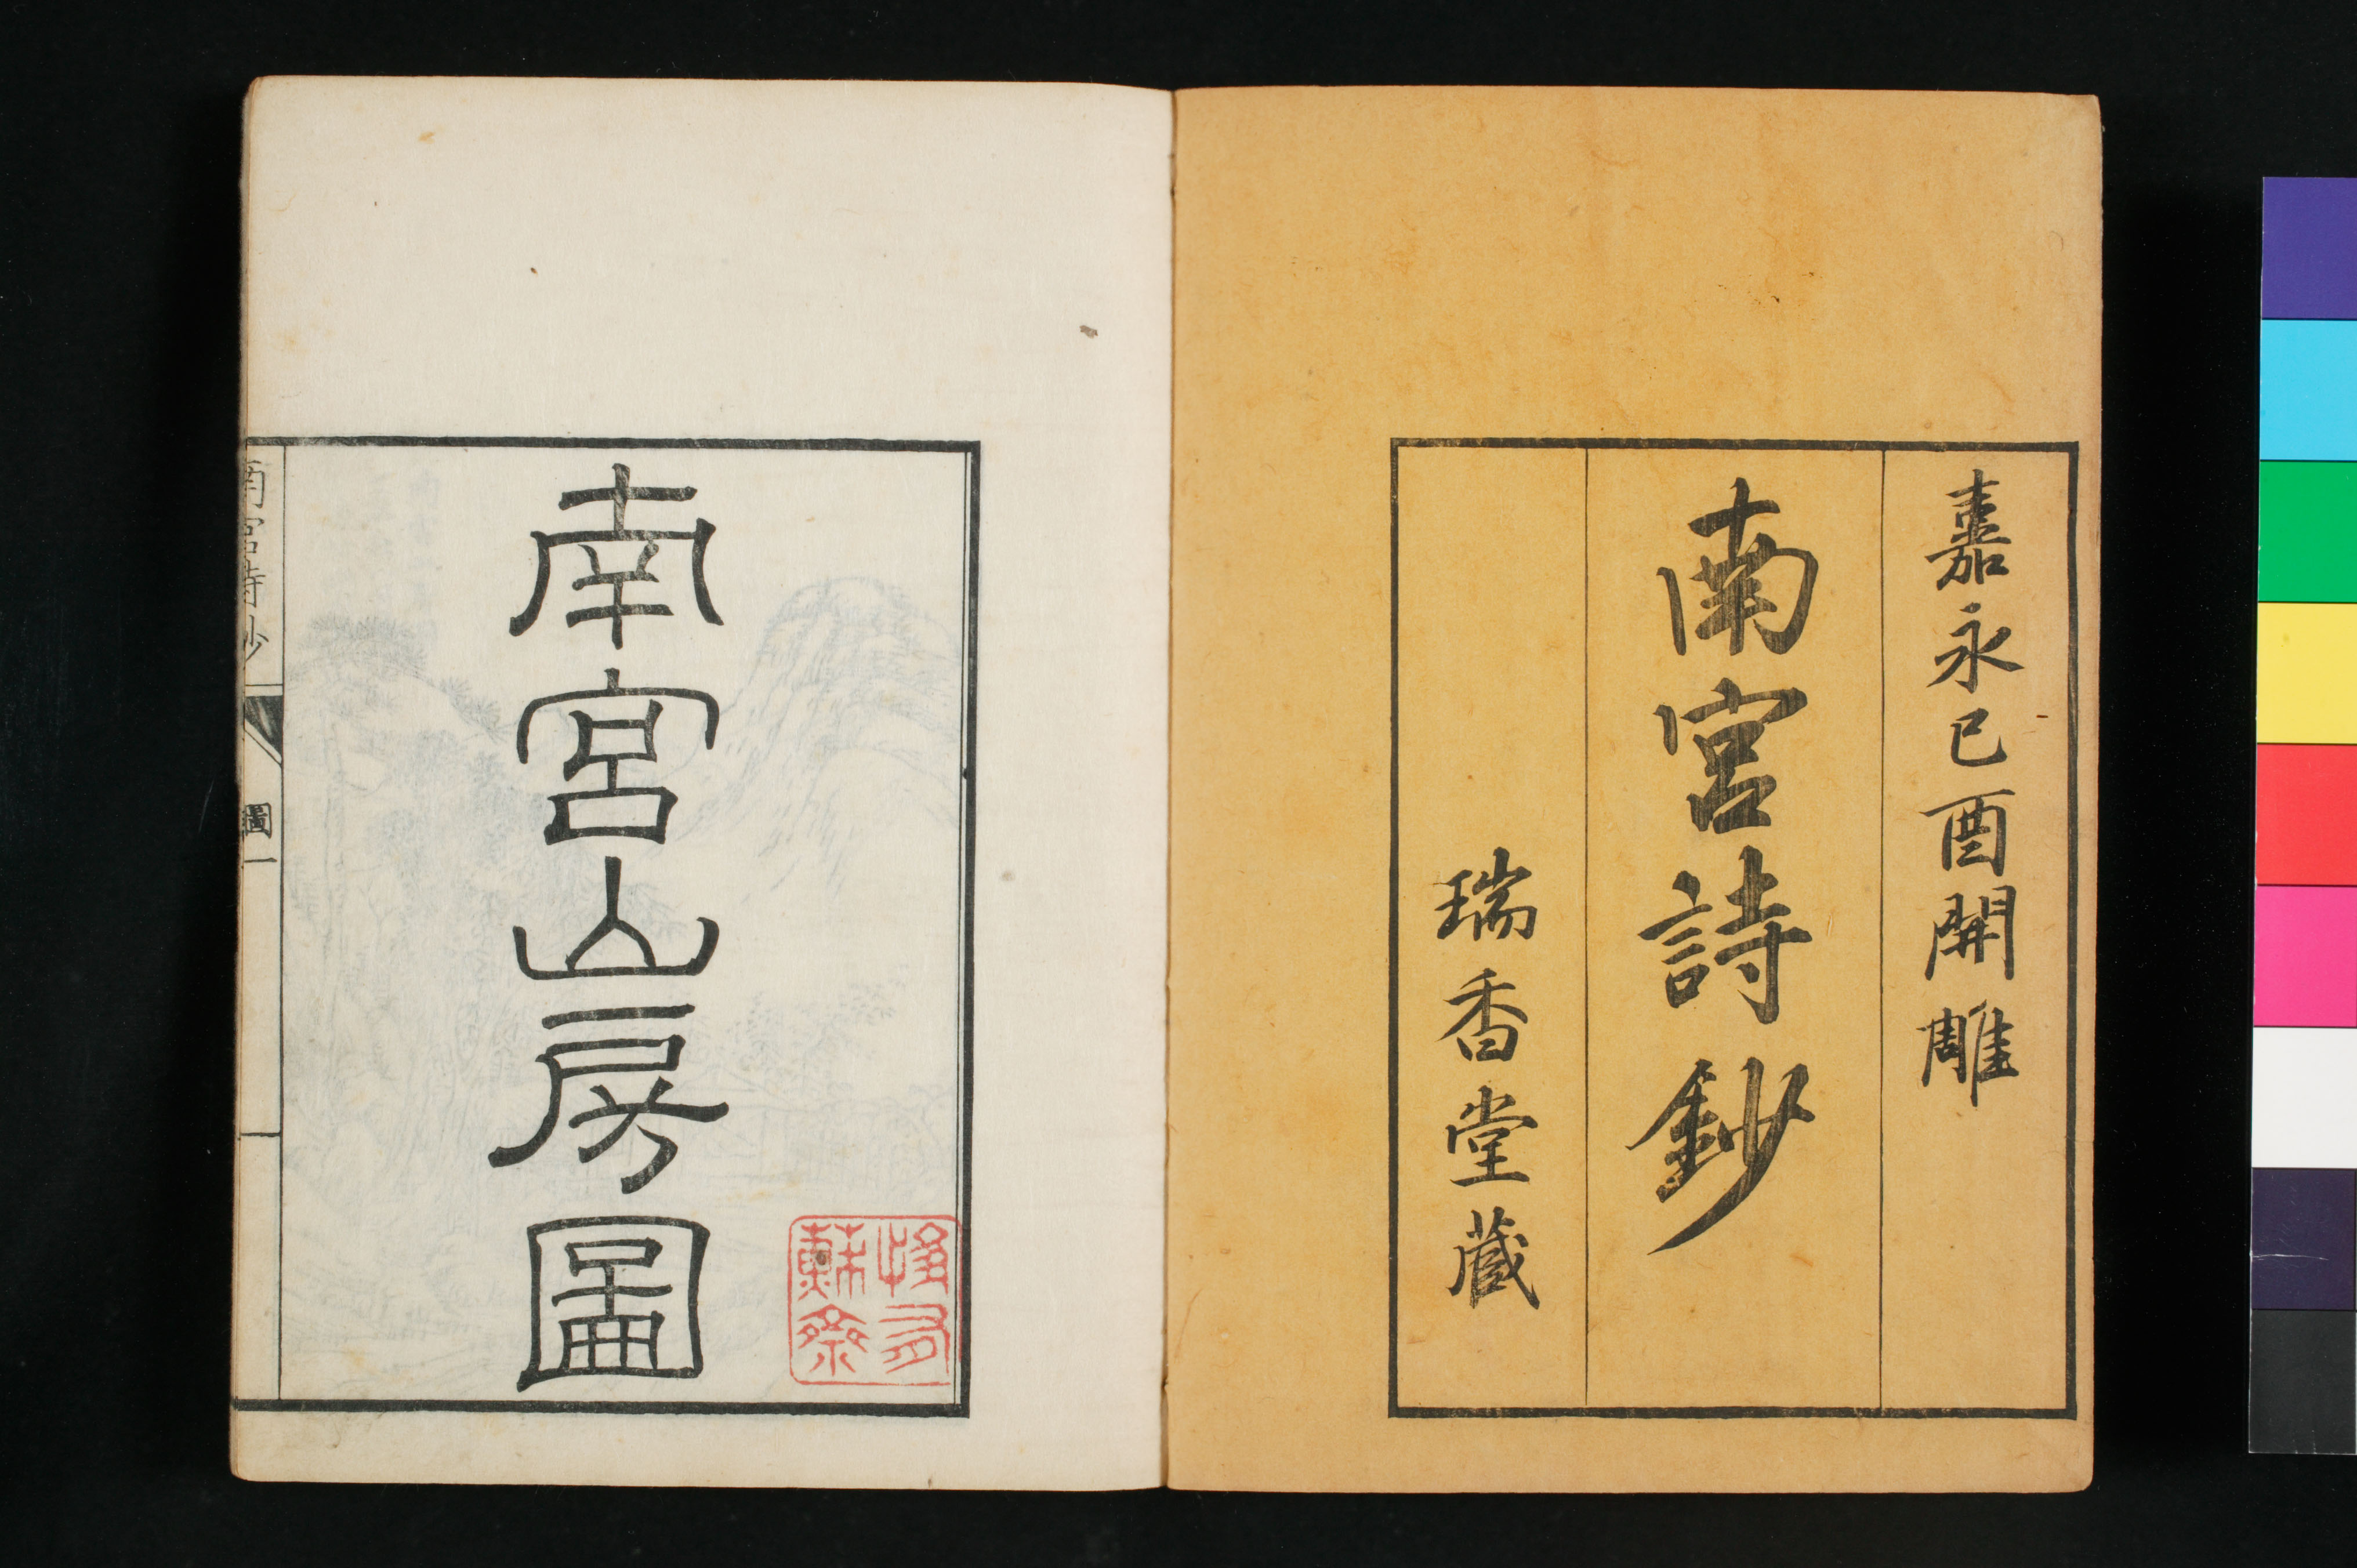 嘉永己酉開雕
南宮詩鈔
瑞香堂藏
南宮山房圖
南宮詩鈔
圖一